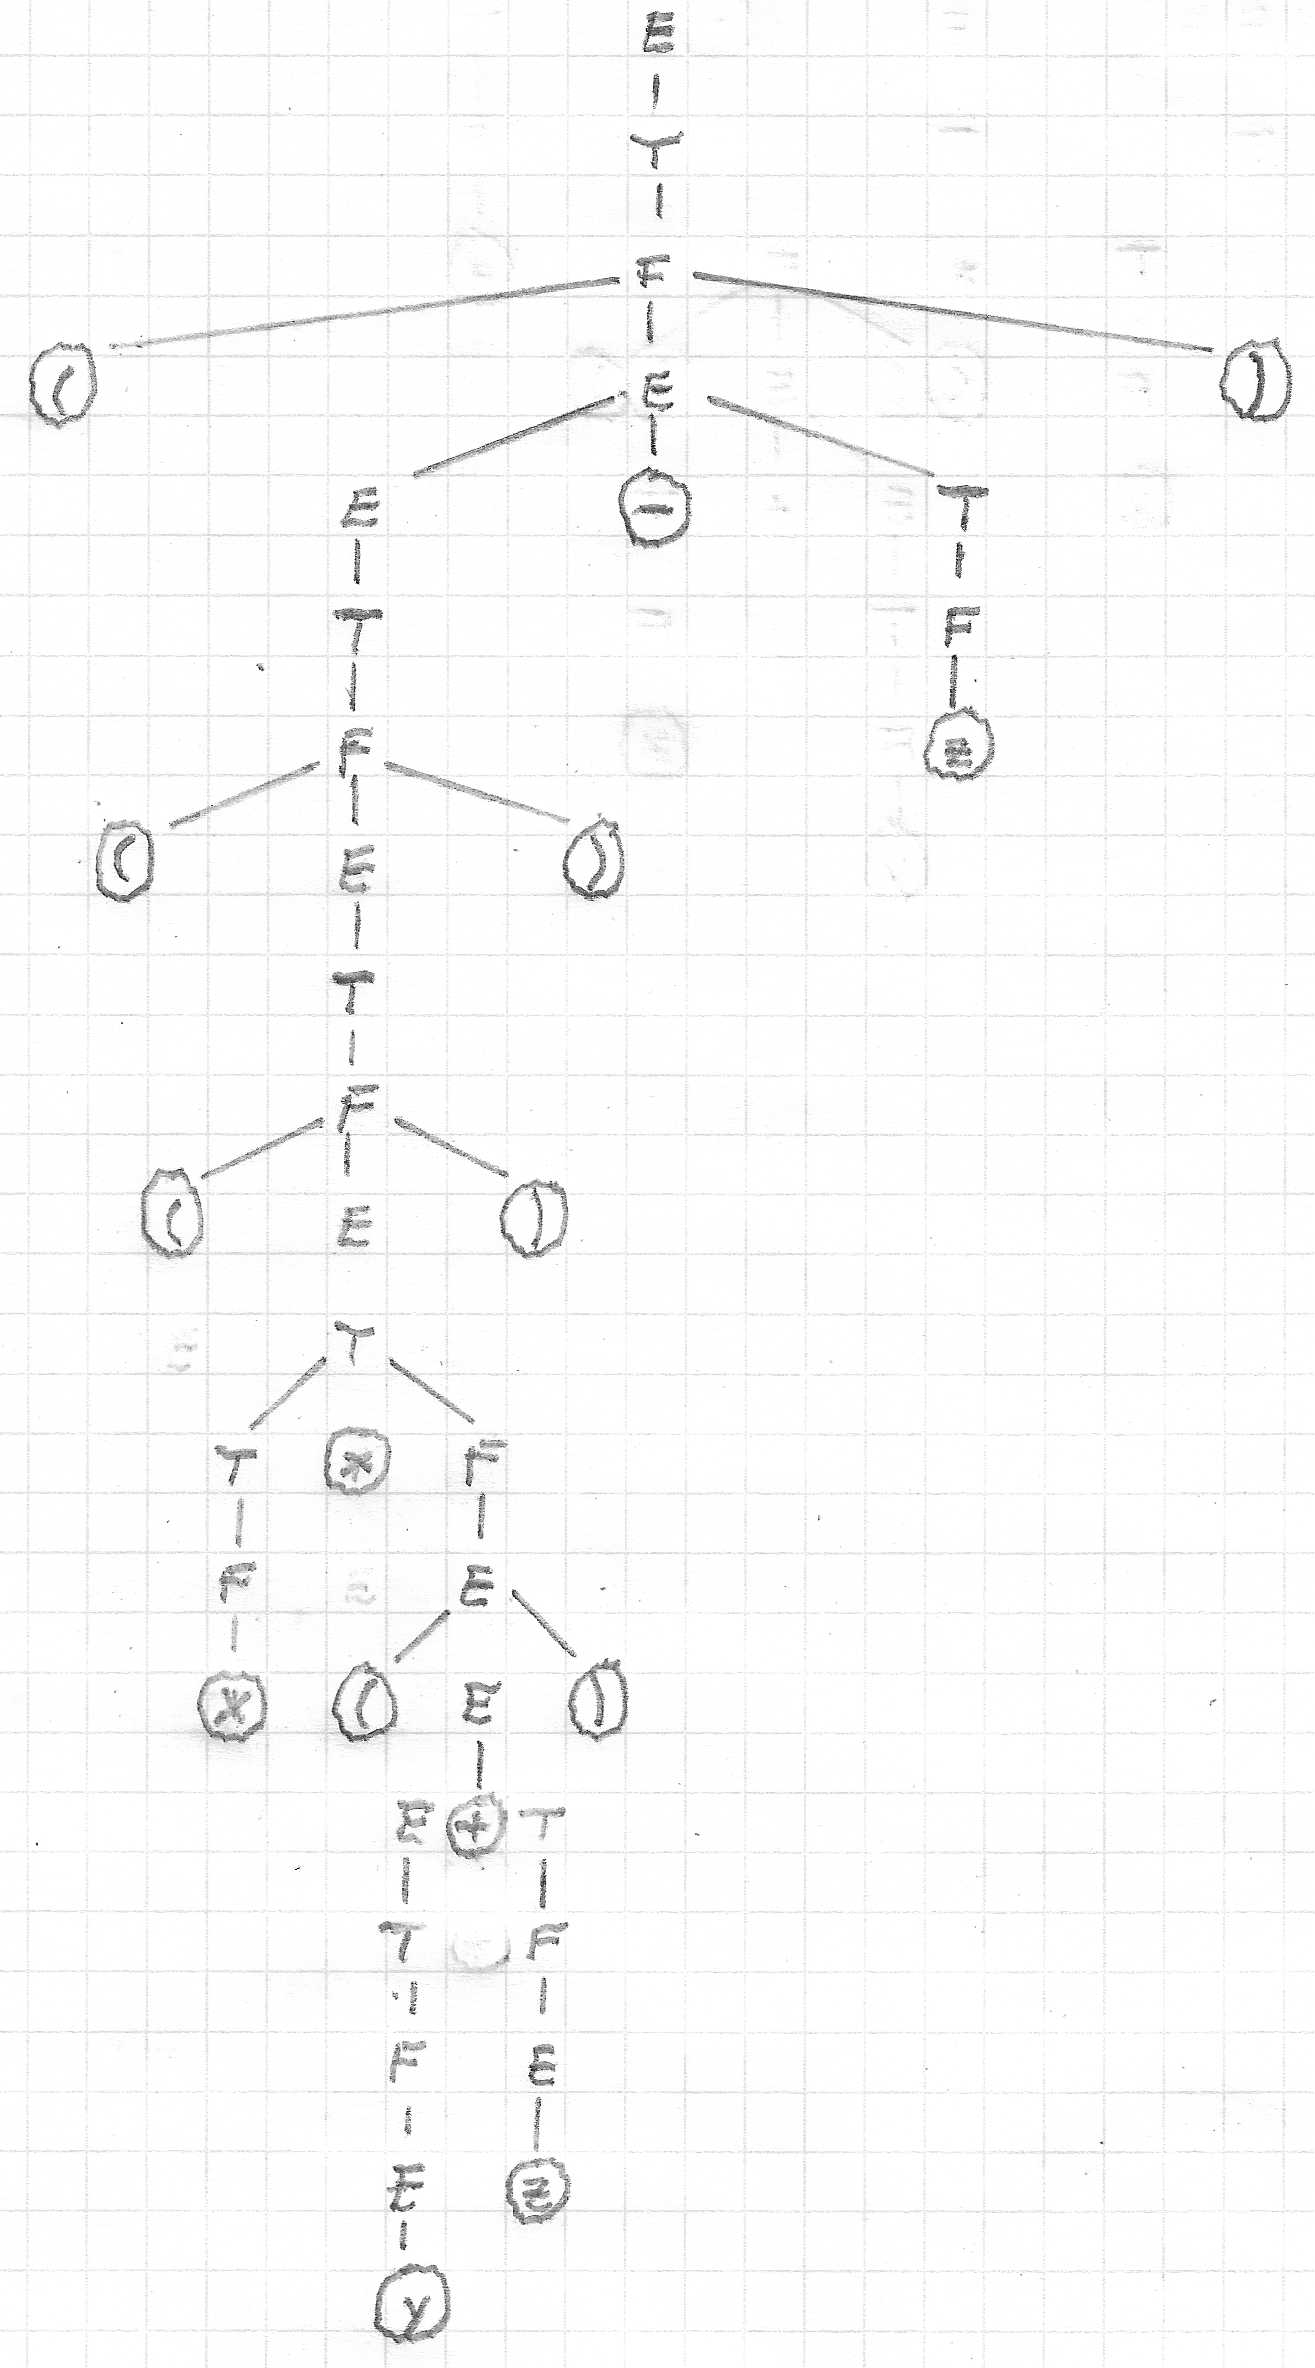 E
T
F
( E )
E - T
T F
F z
( E )
T
F
( E )
T
T * F
F E
* ( E )
E + T
T F
F E
E z
y